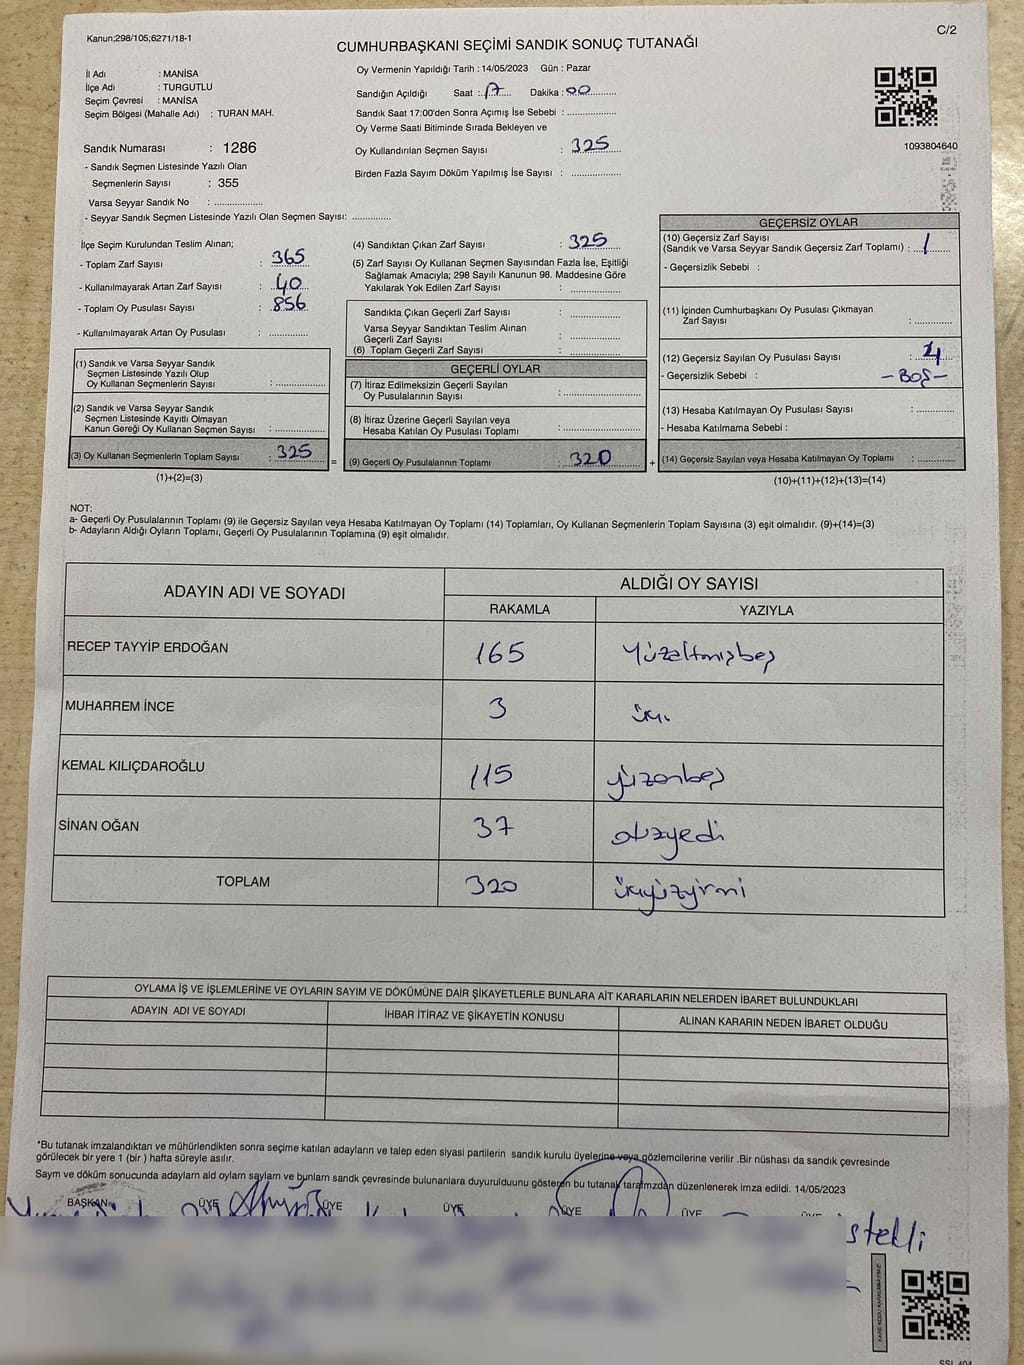 Kanun;298/105;6271/18-1
C/2
CUMHURBAŞKANI SEÇİMİ SANDIK SONUÇ TUTANAĞI
İl Adı : MANİSA
İlçe Adı : TURGUTLU
Seçim Çevresi : MANİSA
Seçim Bölgesi (Mahalle Adı) : TURAN MAH.
Sandık Numarası : 1286
- Sandık Seçmen Listesinde Yazılı Olan
Seçmenlerin Sayısı : 355
Varsa Seyyar Sandık No : ..................
- Seyyar Sandık Seçmen Listesinde Yazılı Olan Seçmen Sayısı: ..............
Oy Vermenin Yapıldığı Tarih : 14/05/2023 Gün : Pazar
Sandığın Açıldığı Saat : 17 Dakika : 00
Sandık Saat 17:00'den Sonra Açımış İse Sebebi : ..................
Oy Verme Saati Bitiminde Sırada Bekleyen ve
Oy Kullandırılan Seçmen Sayısı : 325
Birden Fazla Sayım Döküm Yapılmış İse Sayısı : ..................
1093804640
İlçe Seçim Kurulundan Teslim Alınan;
- Toplam Zarf Sayısı : 365
- Kullanılmayarak Artan Zarf Sayısı : 40
- Toplam Oy Pusulası Sayısı : 856
- Kullanılmayarak Artan Oy Pusulası : ..............
(1) Sandık ve Varsa Seyyar Sandık
Seçmen Listesinde Yazılı Olup
Oy Kullanan Seçmenlerin Sayısı : ..................
(2) Sandık ve Varsa Seyyar Sandık
Seçmen Listesinde Kayıtlı Olmayan
Kanun Gereği Oy Kullanan Seçmen Sayısı : ..................
(3) Oy Kullanan Seçmenlerin Toplam Sayısı : 325 =
(1)+(2)=(3)
(4) Sandıktan Çıkan Zarf Sayısı : 325
(5) Zarf Sayısı Oy Kullanan Seçmen Sayısından Fazla İse, Eşitliği
Sağlamak Amacıyla; 298 Sayılı Kanunun 98. Maddesine Göre
Yakılarak Yok Edilen Zarf Sayısı : ..................
Sandıkta Çıkan Geçerli Zarf Sayısı : ..................
Varsa Seyyar Sandıktan Teslim Alınan
Geçerli Zarf Sayısı : ..................
(6) Toplam Geçerli Zarf Sayısı : ..................
GEÇERLİ OYLAR
(7) İtiraz Edilmeksizin Geçerli Sayılan
Oy Pusulalarının Sayısı : ..................
(8) İtiraz Üzerine Geçerli Sayılan veya
Hesaba Katılan Oy Pusulası Toplamı : ..................
(9) Geçerli Oy Pusulalarının Toplamı : 320 +
GEÇERSİZ OYLAR
(10) Geçersiz Zarf Sayısı
(Sandık ve Varsa Seyyar Sandık Geçersiz Zarf Toplamı) : 1
- Geçersizlik Sebebi :
(11) İçinden Cumhurbaşkanı Oy Pusulası Çıkmayan
Zarf Sayısı : ..............
(12) Geçersiz Sayılan Oy Pusulası Sayısı : 4
- Geçersizlik Sebebi : - BOŞ -
(13) Hesaba Katılmayan Oy Pusulası Sayısı : ..............
- Hesaba Katılmama Sebebi :
(14) Geçersiz Sayılan veya Hesaba Katılmayan Oy Toplamı : ..............
(10)+(11)+(12)+(13)=(14)
NOT:
a- Geçerli Oy Pusulalarının Toplamı (9) ile Geçersiz Sayılan veya Hesaba Katılmayan Oy Toplamı (14) Toplamları, Oy Kullanan Seçmenlerin Toplam Sayısına (3) eşit olmalıdır. (9)+(14)=(3)
b- Adayların Aldığı Oyların Toplamı, Geçerli Oy Pusulalarının Toplamına (9) eşit olmalıdır.
ADAYIN ADI VE SOYADI
ALDIĞI OY SAYISI
RAKAMLA YAZIYLA
RECEP TAYYİP ERDOĞAN 165 Yüzaltmışbeş
MUHARREM İNCE 3 üç
KEMAL KILIÇDAROĞLU 115 yüzonbeş
SİNAN OĞAN 37 otuzyedi
TOPLAM 320 üçyüzyirmi
OYLAMA İŞ VE İŞLEMLERİNE VE OYLARIN SAYIM VE DÖKÜMÜNE DAİR ŞİKAYETLERLE BUNLARA AİT KARARLARIN NELERDEN İBARET BULUNDUKLARI
ADAYIN ADI VE SOYADI İHBAR İTİRAZ VE ŞİKAYETİN KONUSU ALINAN KARARIN NEDEN İBARET OLDUĞU
*Bu tutanak imzalandıktan ve mühürlendikten sonra seçime katılan adayların ve talep eden siyasi partilerin sandık kurulu üyelerine veya gözlemcilerine verilir .Bir nüshası da sandık çevresinde
görülecek bir yere 1 (bir ) hafta süreyle asılır.
Sayım ve döküm sonucunda adayların ald oyların sayların ve bunların sandk çevresinde bulunanlara duyurulduunu gösteren bu tutanak tarafmzdan düzenlenerek imza edildi. 14/05/2023
BAŞKAN ÜYE ÜYE ÜYE ÜYE ÜYE ÜYE